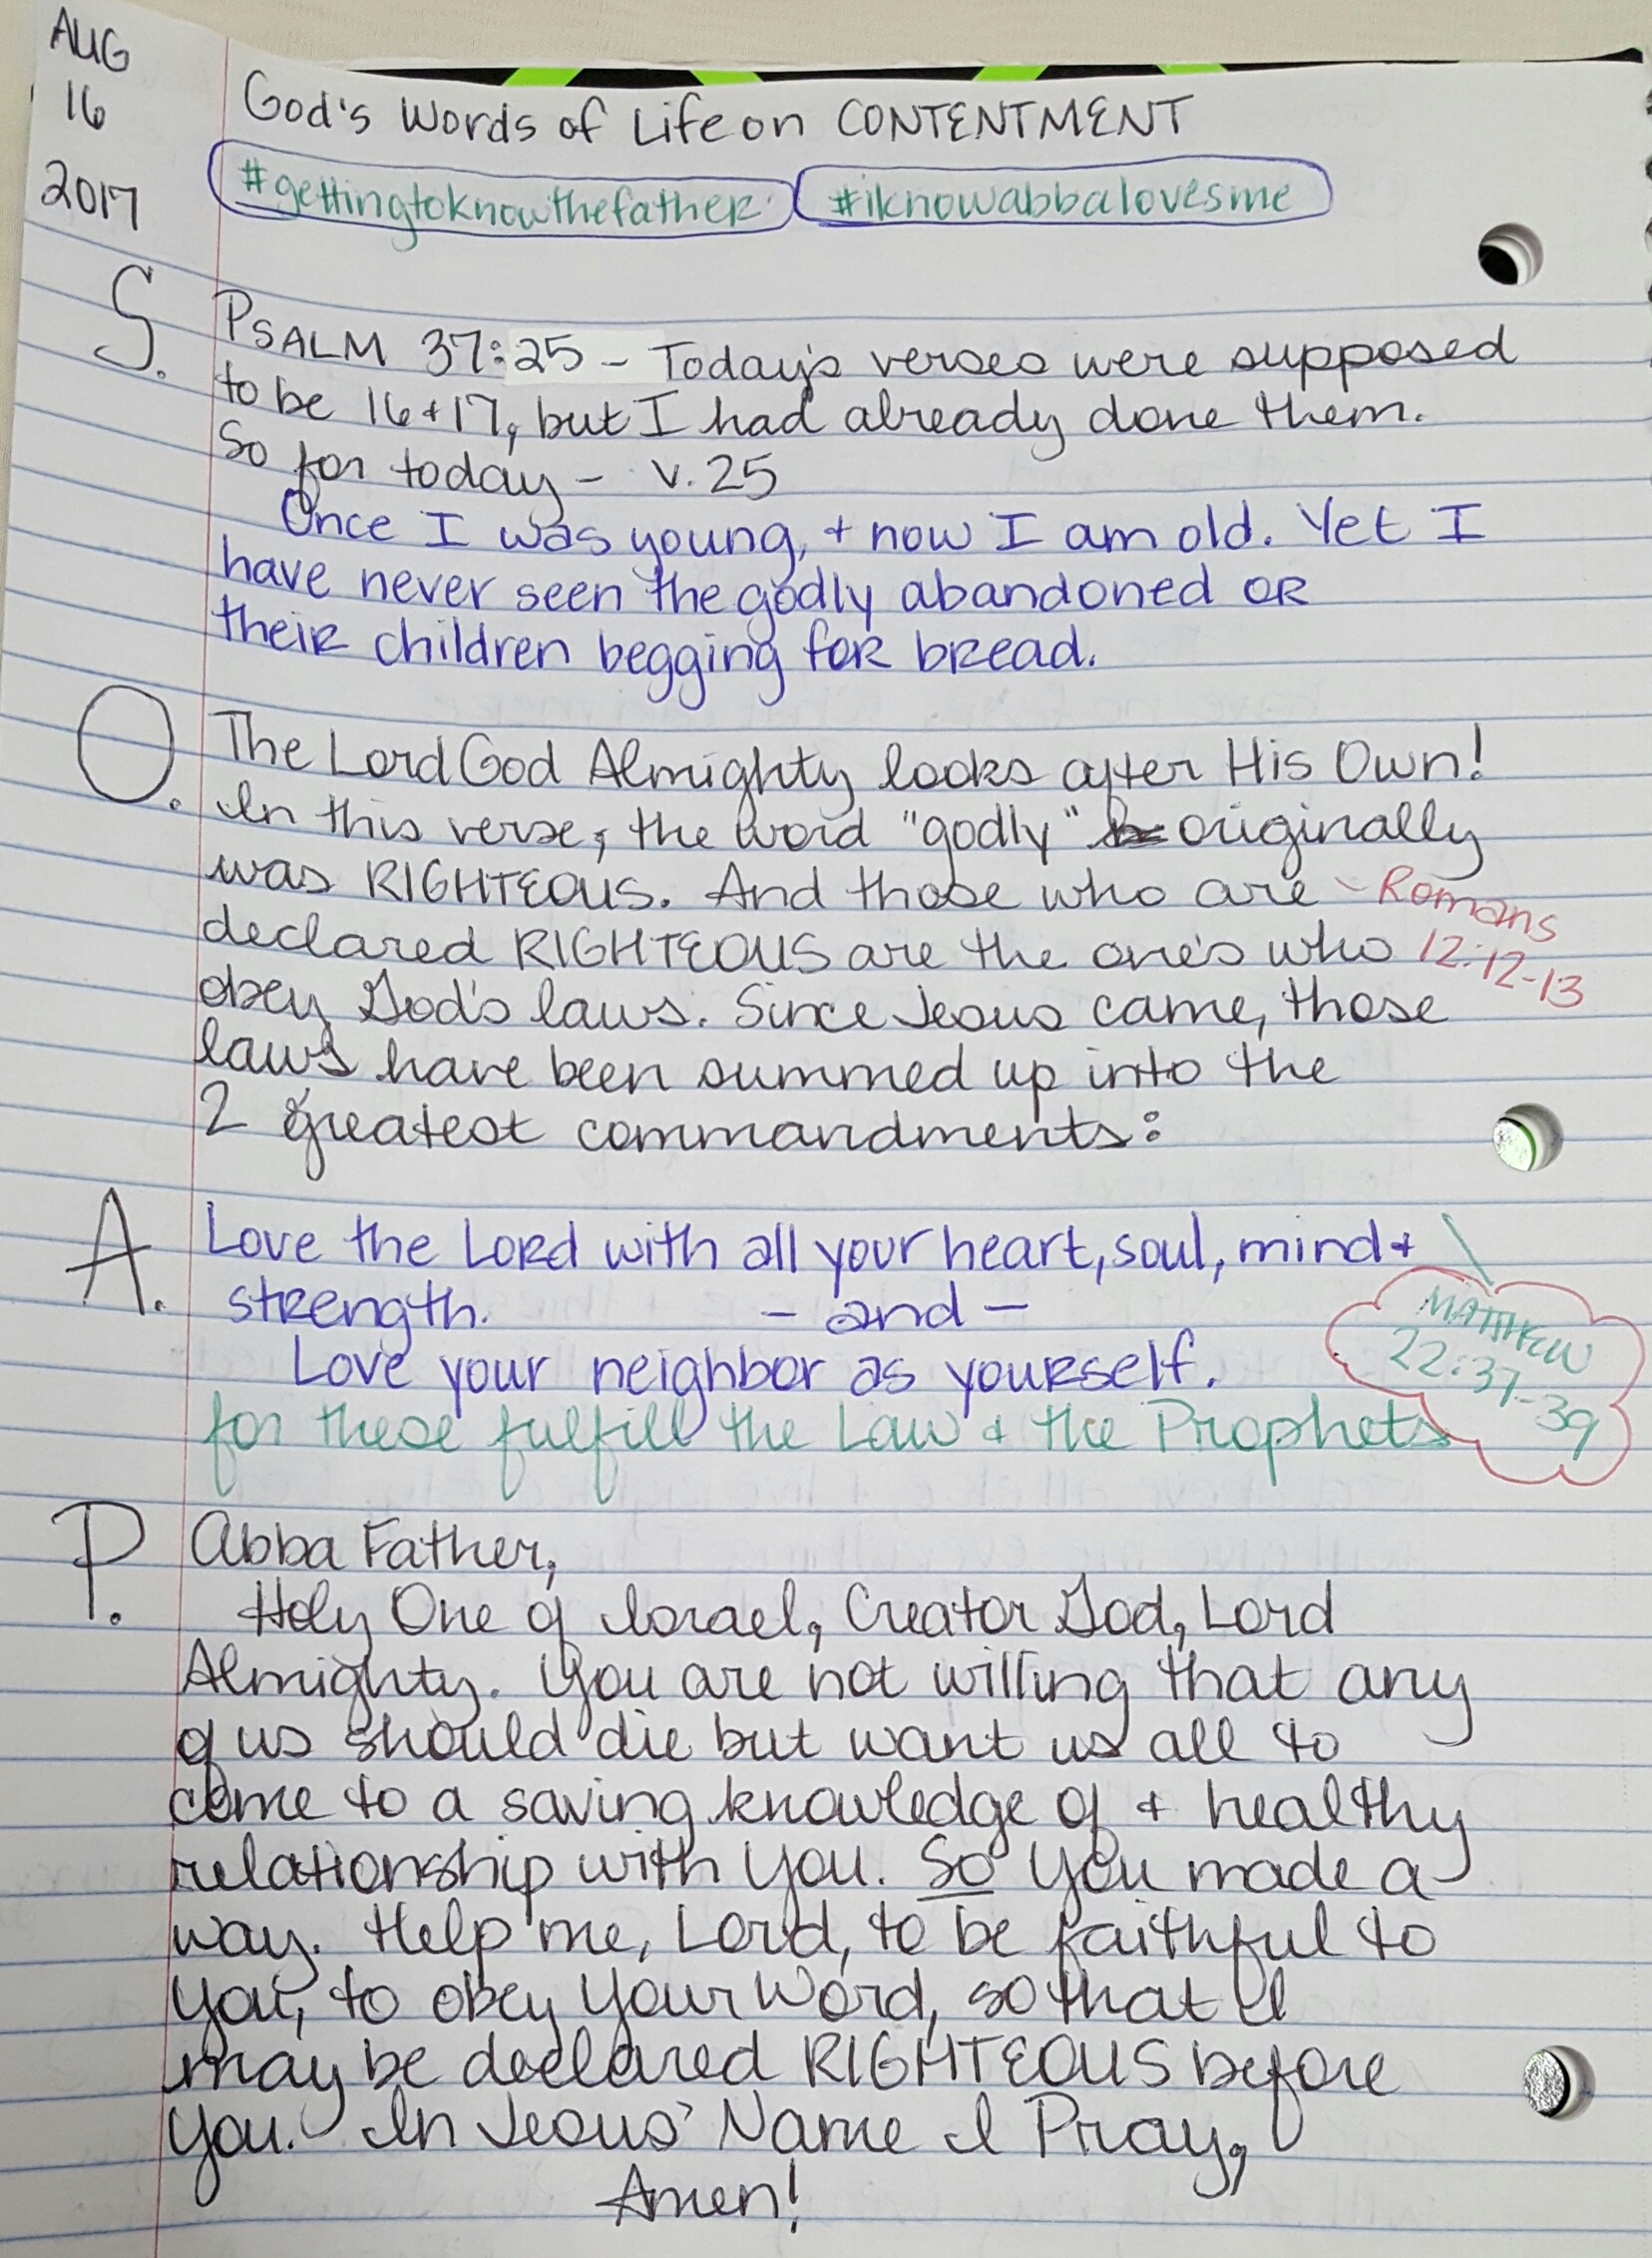 AUG
16
2017
God's Words of Life on CONTENTMENT
#gettingtoknowthefather #iknowabbalovesme
S. PSALM 37:25 - Today's verses were supposed
to be 16 + 17, but I had already done them.
So for today - v. 25
Once I was young, + now I am old. Yet I
have never seen the godly abandoned OR
their children begging for bread.
O. The Lord God Almighty looks after His Own!
In this verse, the word "godly" originally
was RIGHTEOUS. And those who are - Romans
declared RIGHTEOUS are the one's who 12:12-13
obey God's laws. Since Jesus came, those
laws have been summed up into the
2 greatest commandments:
A. Love the Lord with all your heart, soul, mind +
strength. - and -
Love your neighbor as yourself.
for these fulfill the Law + the Prophets
MATTHEW
22:37-39
P. Abba Father,
Holy One of Israel, Creator God, Lord
Almighty. You are not willing that any
of us should die but want us all to
come to a saving knowledge of + healthy
relationship with You. So You made a
way. Help me, Lord, to be faithful to
You, to obey Your Word, so that I
may be declared RIGHTEOUS before
You. In Jesus' Name I Pray,
Amen!